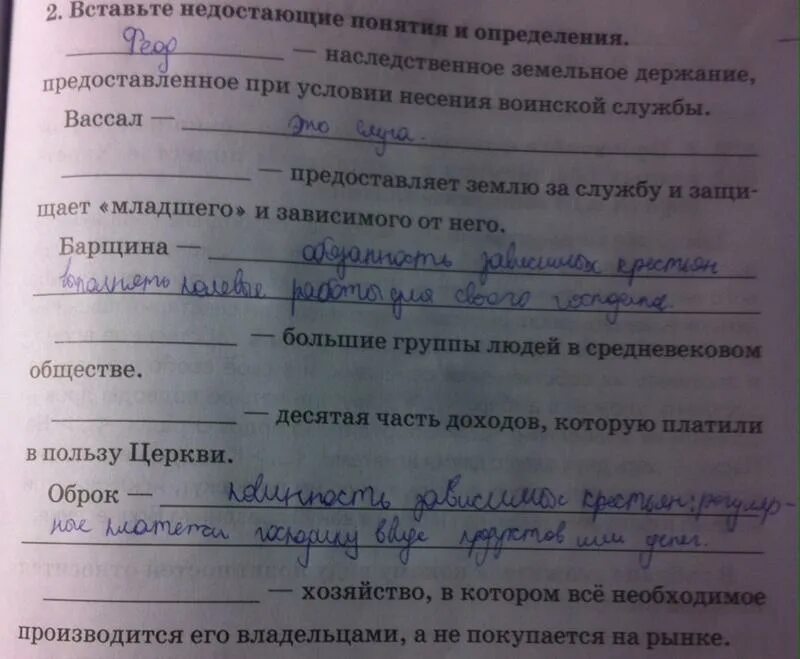 2. Вставьте недостающие понятия и определения.
Феод — наследственное земельное держание,
предоставленное при условии несения воинской службы.
Вассал — это слуга.
— предоставляет землю за службу и защи-
щает «младшего» и зависимого от него.
Барщина — обязанность зависимых крестьян
выполнять полевые работы для своего господина.
— большие группы людей в средневековом
обществе.
— десятая часть доходов, которую платили
в пользу Церкви.
Оброк — повинность зависимых крестьян: регуляр-
ные платежи господину в виде продуктов или денег.
— хозяйство, в котором всё необходимое
производится его владельцами, а не покупается на рынке.